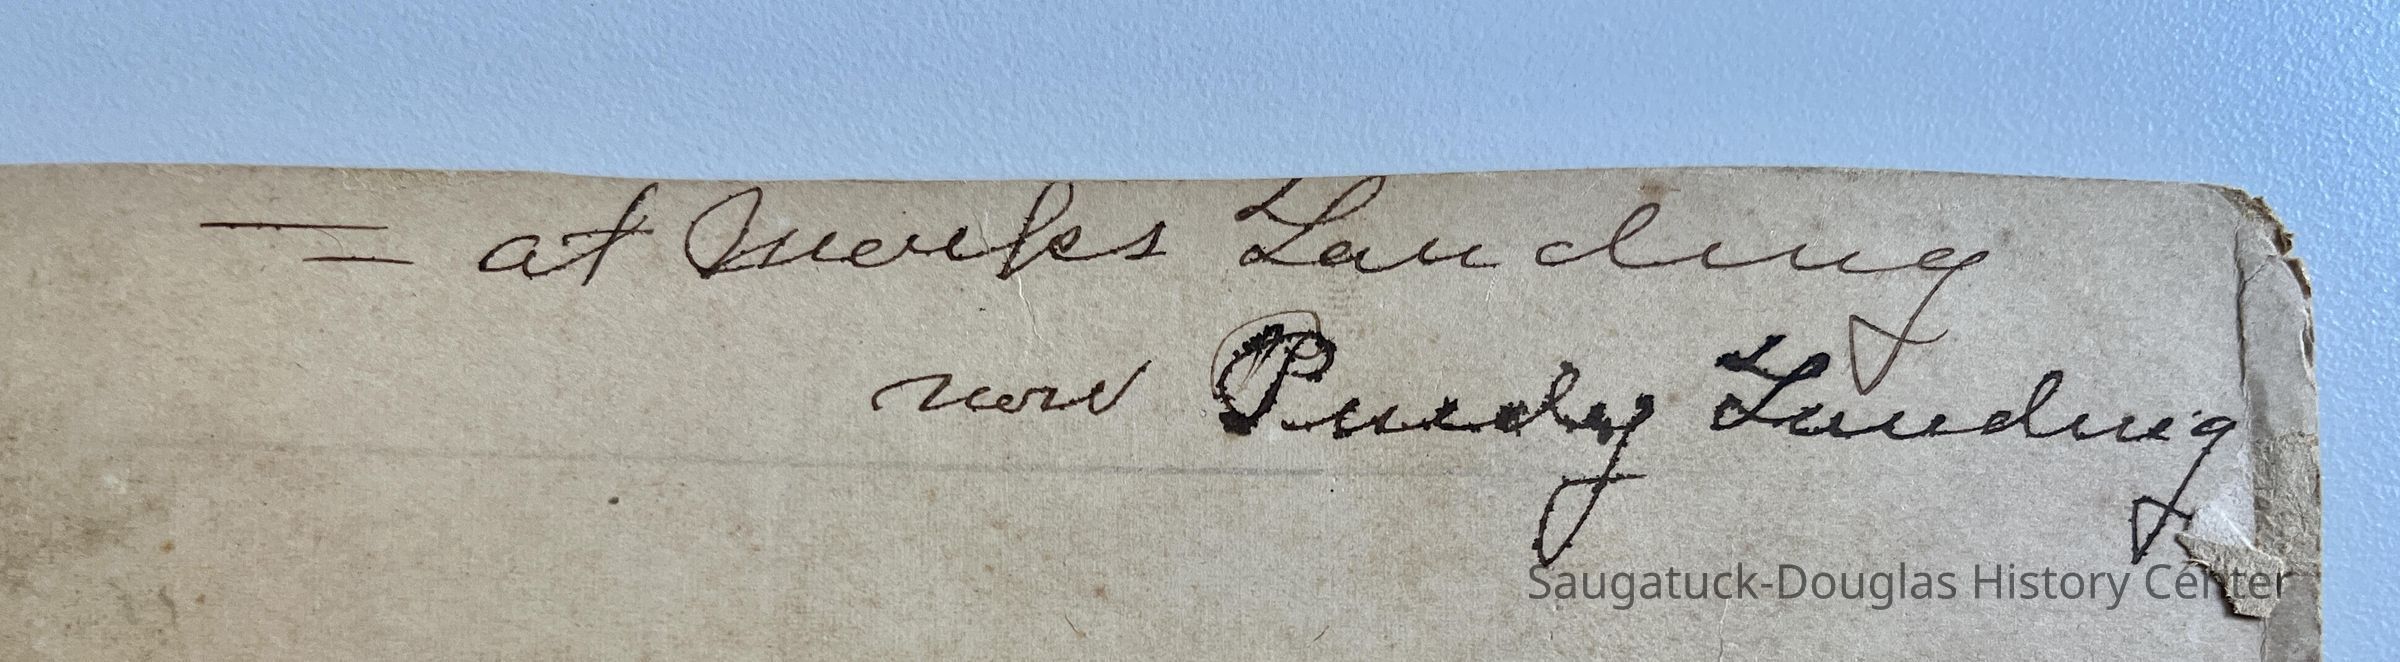 = at Monks Landing
now Purdy Landing
Saugatuck-Douglas History Center